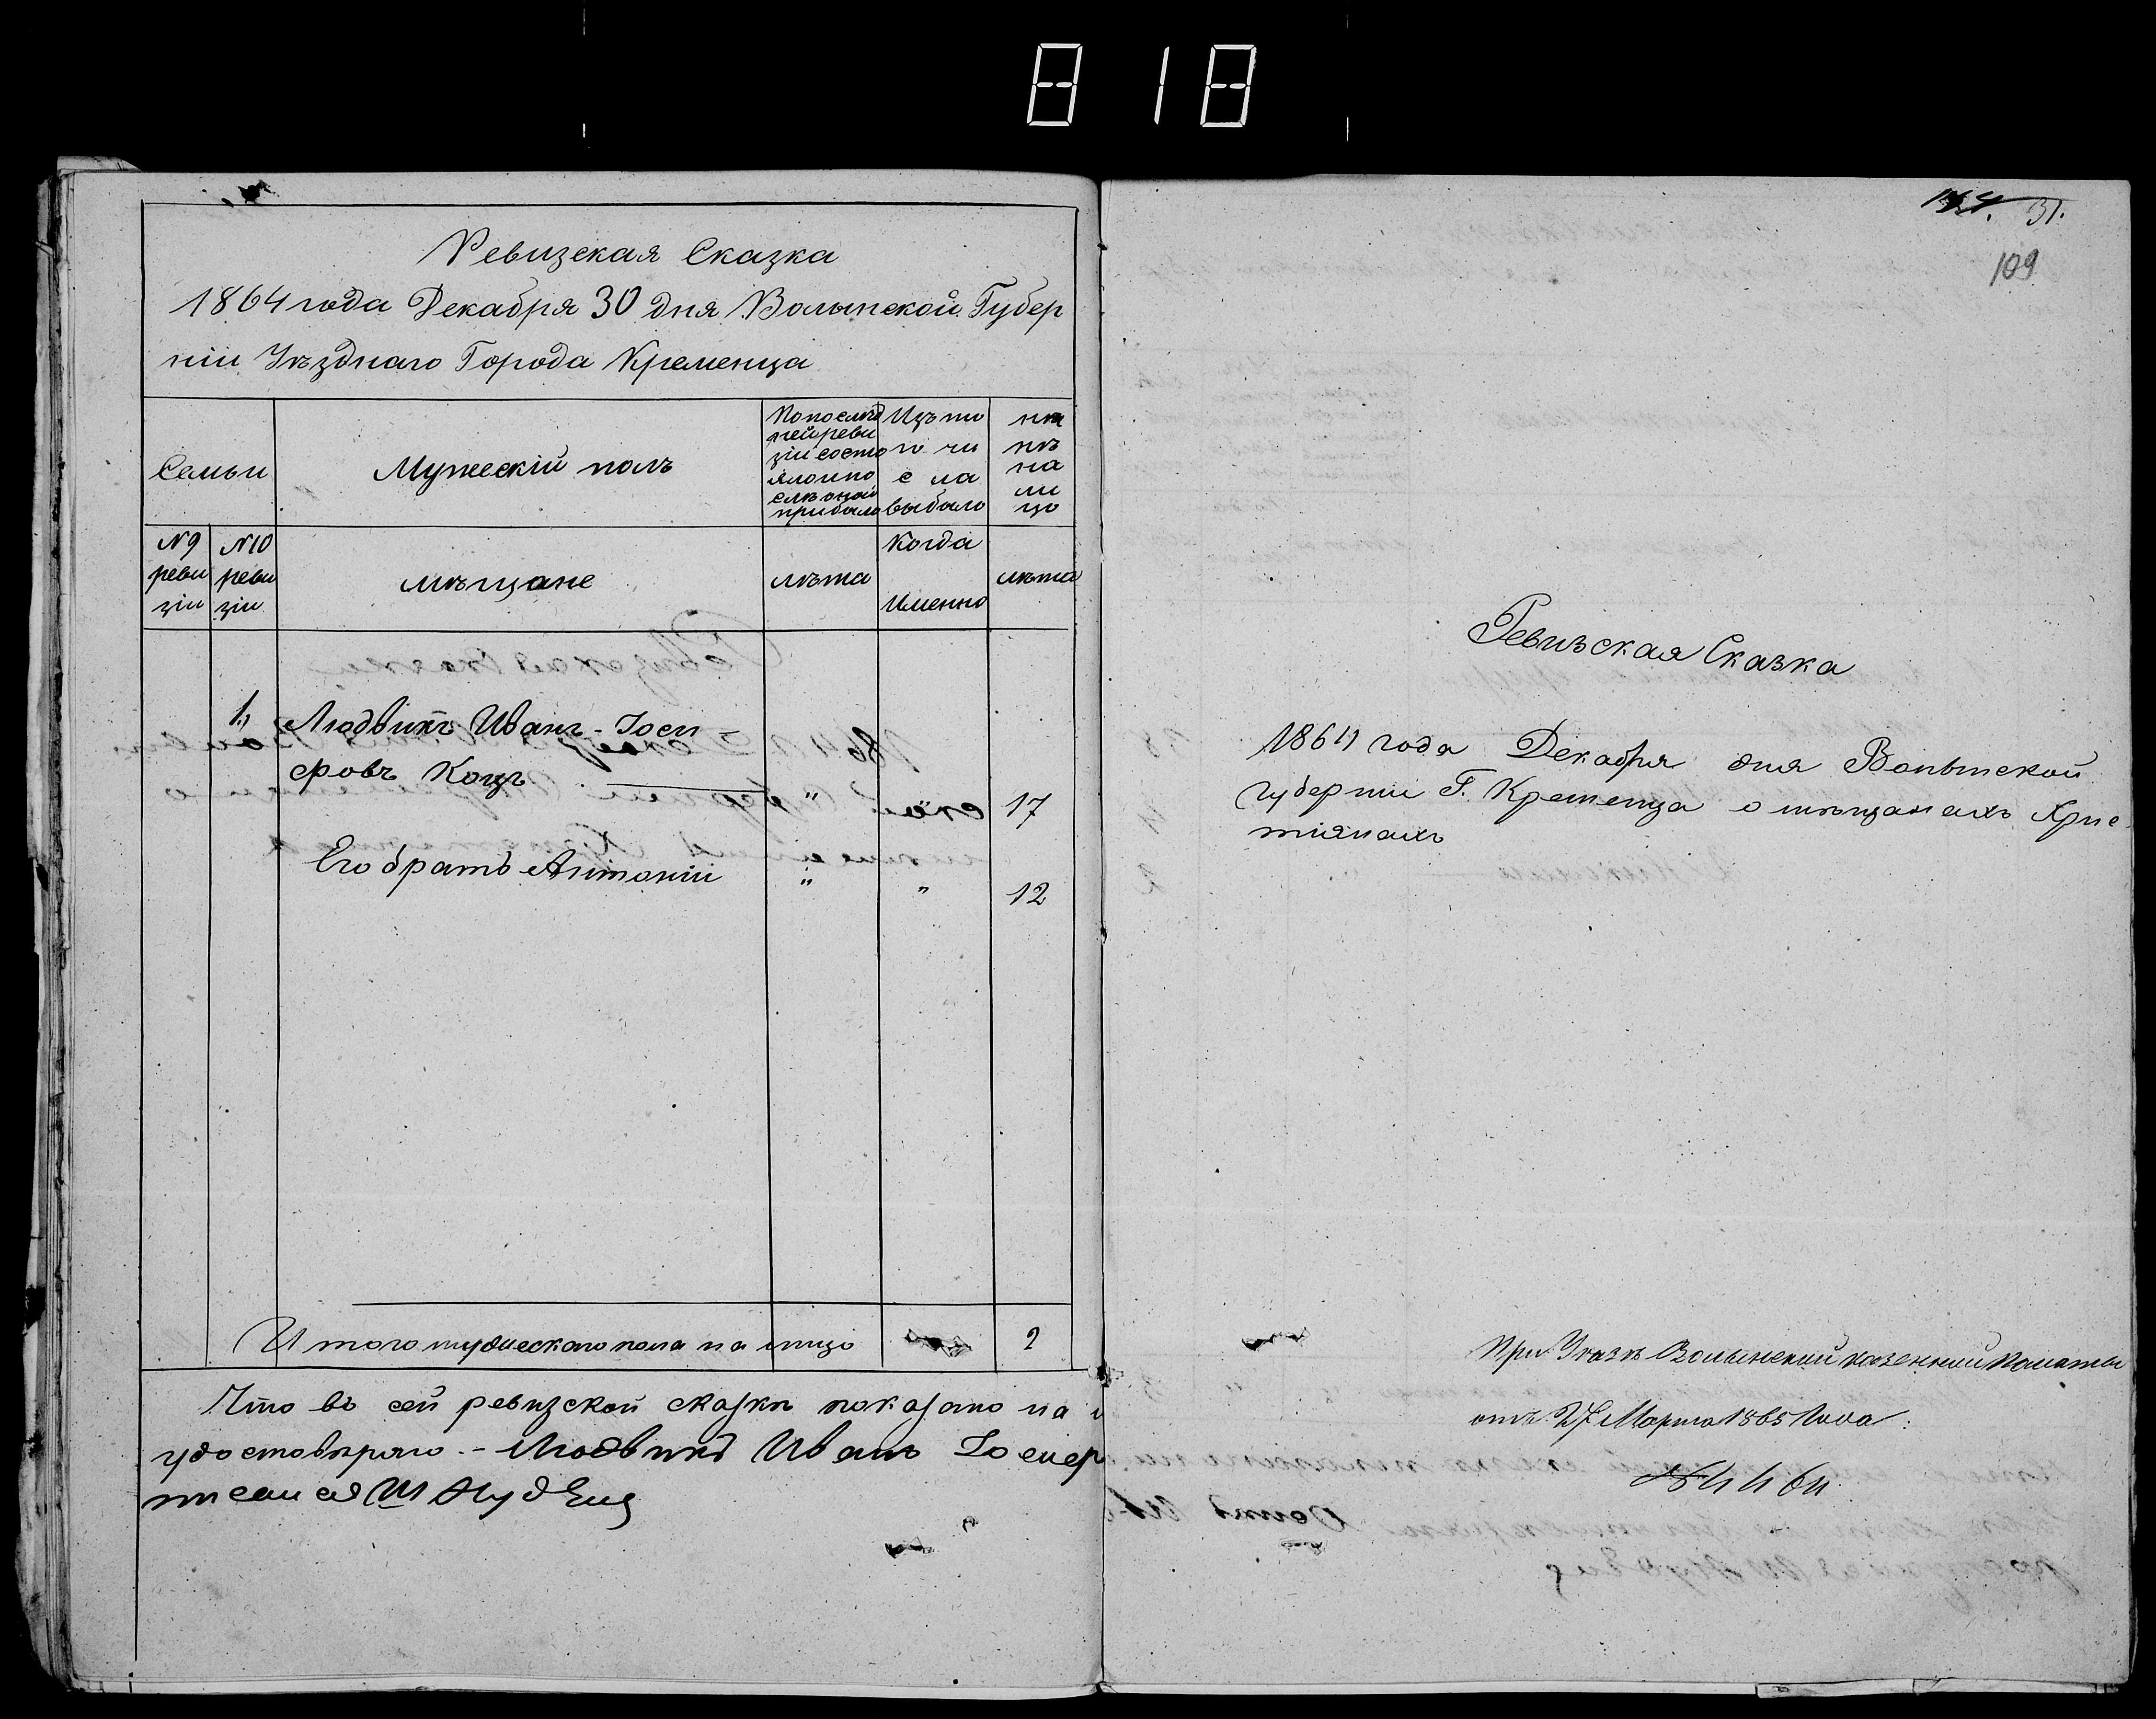 818
Ревизская Сказка
1864 года Декабря 30 дня Волынской Губер
ніи Уѣзднаго Города Кременца
Семьи
Мужескій полъ
По послѣд
ней реви
зіи состо
яло и по
слѣ оной
прибыло
Изъ то
го чи
сла
выбыло
ны
нѣ
на
ли
цо
№9
реви
зіи
№10
реви
зіи
мѣщане
лѣта
Когда
Именно
лѣта
1.
Людвикъ Иванъ-Іоси-
фовъ Коцъ " 17
Его братъ Антоній " " 12
Итого мужескаго пола на лицо 2
Что въ сей ревизской сказки показано на
удостовѣряю. - Людвикъ Иванъ
31.
109
Ревизская Сказка
1864 года Декабря дня Волынской
Губерніи Г. Кременца о мѣщанахъ Хрис
тіянахъ
При Указѣ Волынской казенной Палаты
отъ 27 Марта 1865 Года.